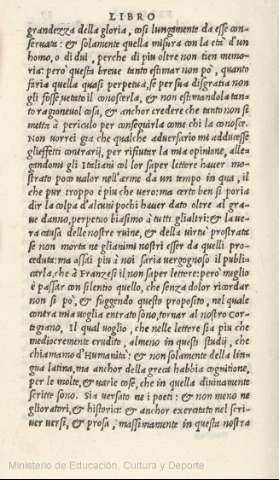 LIBRO
grandezza della gloria, cosi lungamente da esse con-
seruata: & solamente quella misura con la età d'un
homo, o di dui, perche di piu oltre non tien memo-
ria: però questa breue tanto estimar non pò, quanto
faria quella quasi perpetua, se per sua disgratia non
gli fosse uetato il conoscerla, & non estimandola tan-
to ragioneuol cosa, & anchor credere che tanto non si
metta à pericolo per conseguirla come chi la conosce.
Non uorrei gia che qualche aduersario mi adducesse
gli effetti contrarij, per rifiutar la mia opinione, alle-
gandomi gli Italiani col lor saper lettere hauer mo-
strato poco ualor nell'arme da un tempo in qua, il
che pur troppo è piu che uero: ma certo ben si poria
dir la colpa d'alcuni pochi hauer dato oltre al gra-
ue danno, perpetuo biasimo à tutti gli altri: & la ue-
ra causa delle nostre ruine, & della uirtù prostrata
se non morta ne gli animi nostri esser da quelli pro-
ceduta: ma assai piu à noi saria uergognoso il publi-
carla, che à Franzesi il non saper lettere: però meglio
è passar con silentio quello, che senza dolor ricordar
non si pò, & fuggendo questo proposito, nel quale
contra mia uoglia entrato sono, tornar al nostro Cor-
tegiano, il qual uoglio, che nelle lettere sia piu che
mediocremente erudito, almeno in questi studij, che
chiamamo d'Humanità: & non solamente della lin-
gua latina, ma anchor della greca habbia cognitione,
per le molte, & uarie cose, che in quella diuinamente
scritte sono. Sia uersato ne i poeti: & non meno ne
gli oratori, & historici & anchor exercitato nel scri-
uer uersi, & prosa, massimamente in questa nostra
Ministerio de Educación, Cultura y Deporte